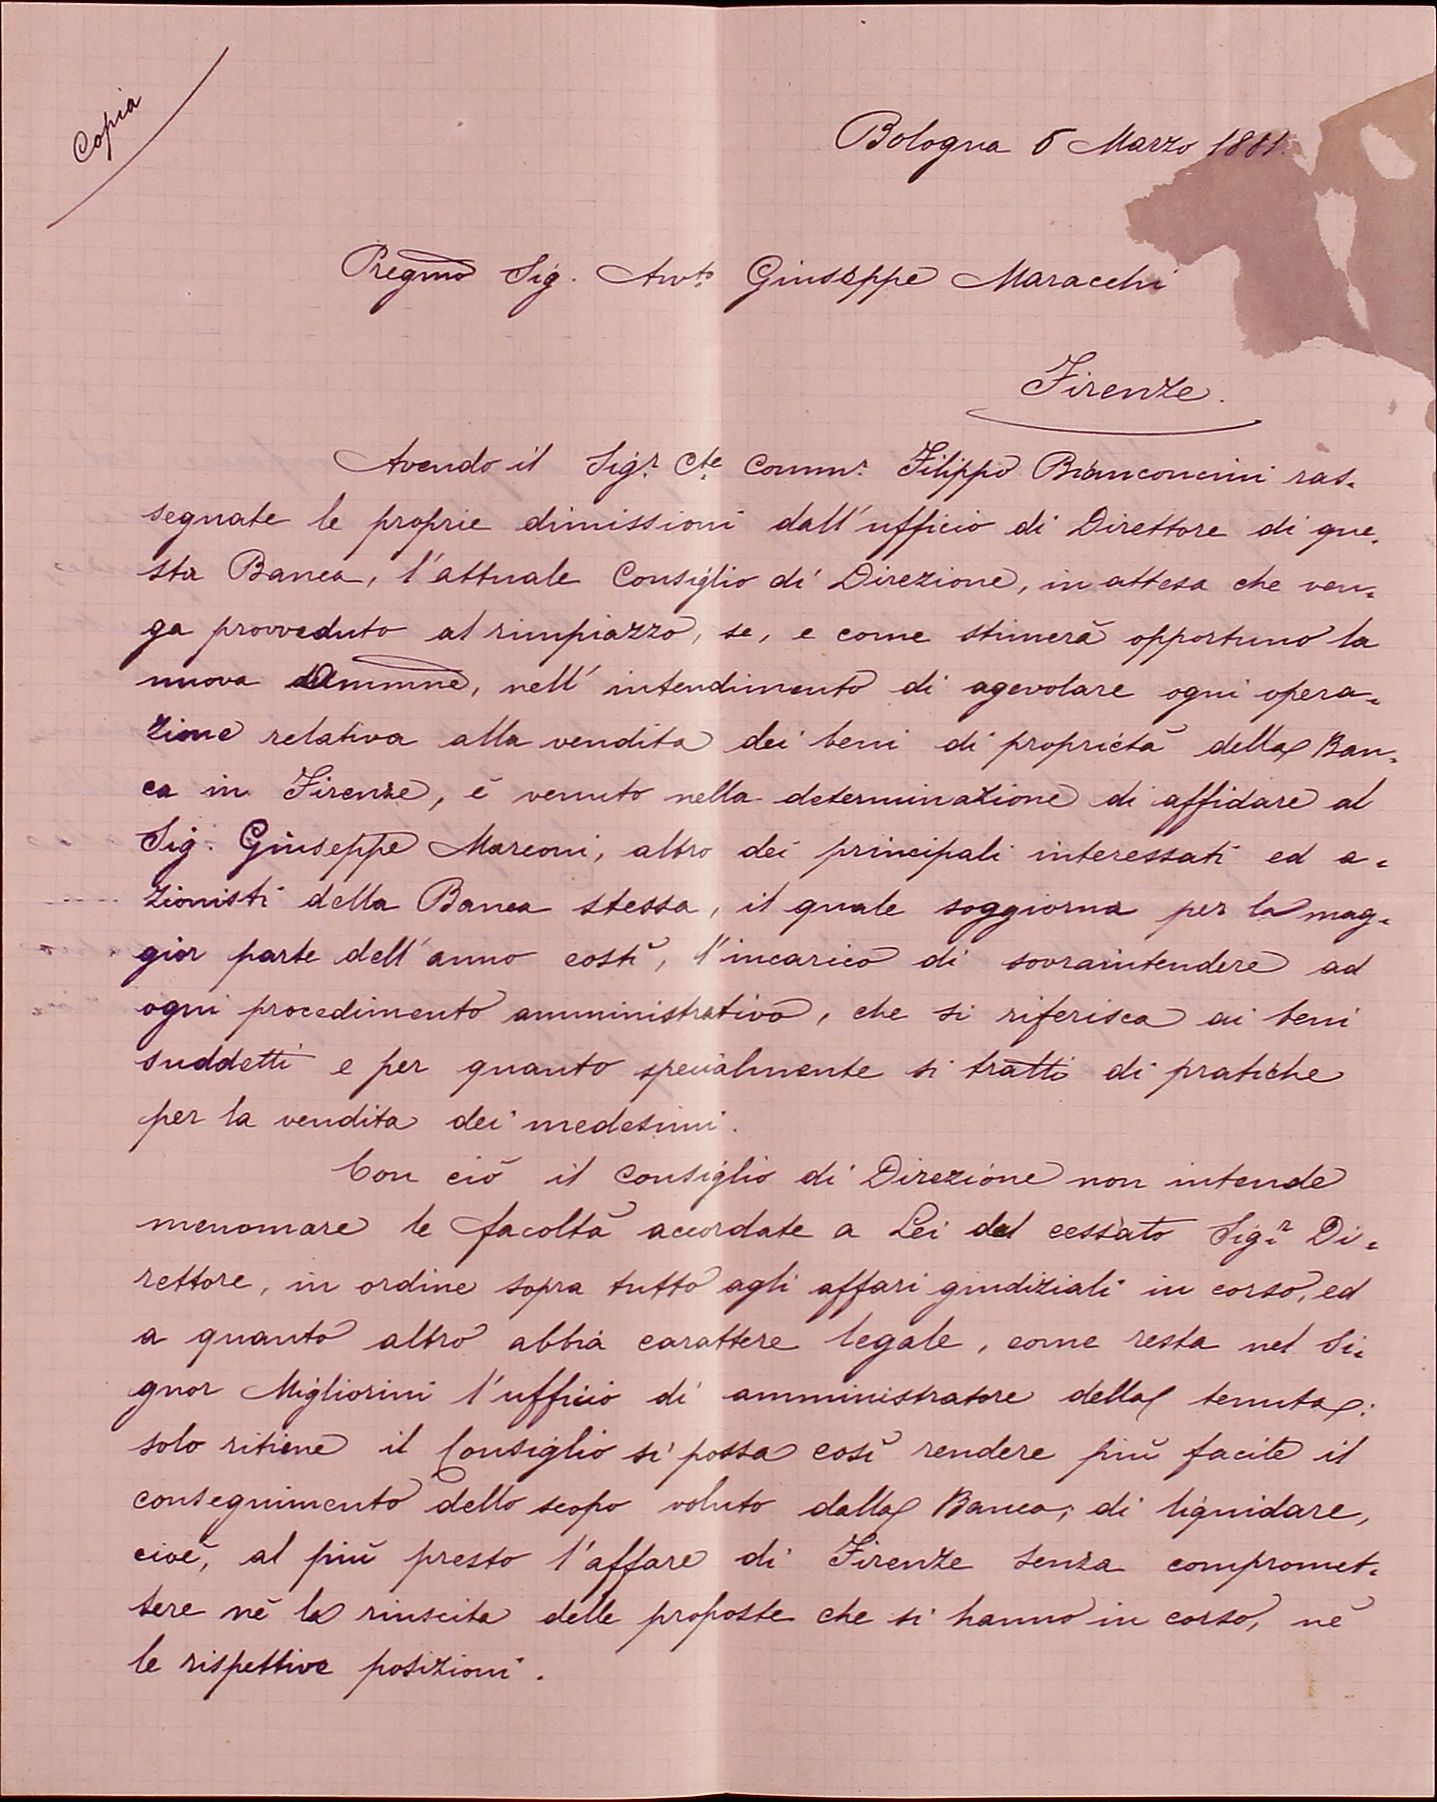 Copia
Bologna 5 Marzo 1881.
Pregmo Sig. Avvto Giuseppe Maracchi
Firenze.
Avendo il Sigr. Cte Commr. Filippo Bianconcini ras-
segnate le proprie dimissioni dall'ufficio di Direttore di que-
sta Banca, l'attuale Consiglio di Direzione, in attesa che ven-
ga provveduto al rimpiazzo, se, e come stimerà opportuno la
nuova Ammne, nell'intendimento di agevolare ogni opera-
zione relativa alla vendita dei beni di proprietà della Ban-
ca in Firenze, è venuto nella determinazione di affidare al
Sig. Giuseppe Marconi, altro dei principali interessati ed a-
zionisti della Banca stessa, il quale soggiorna per la mag-
gior parte dell'anno costì, l'incarico di sovraintendere ad
ogni procedimento amministrativo, che si riferisca ai beni
suddetti e per quanto specialmente si tratti di pratiche
per la vendita dei medesimi.
Con ciò il Consiglio di Direzione non intende
menomare le facoltà accordate a Lei dal cessato Sigr. Di-
rettore, in ordine sopra tutto agli affari giudiziali in corso, ed
a quanto altro abbia carattere legale, come resta nel Si-
gnor Migliorini l'ufficio di amministratore della tenuta:
solo ritiene il Consiglio si possa così rendere più facile il
conseguimento dello scopo voluto dalla Banca, di liquidare,
cioè, al più presto l'affare di Firenze senza compromet-
tere nè la riuscita delle proposte che si hanno in corso, nè
le rispettive posizioni.